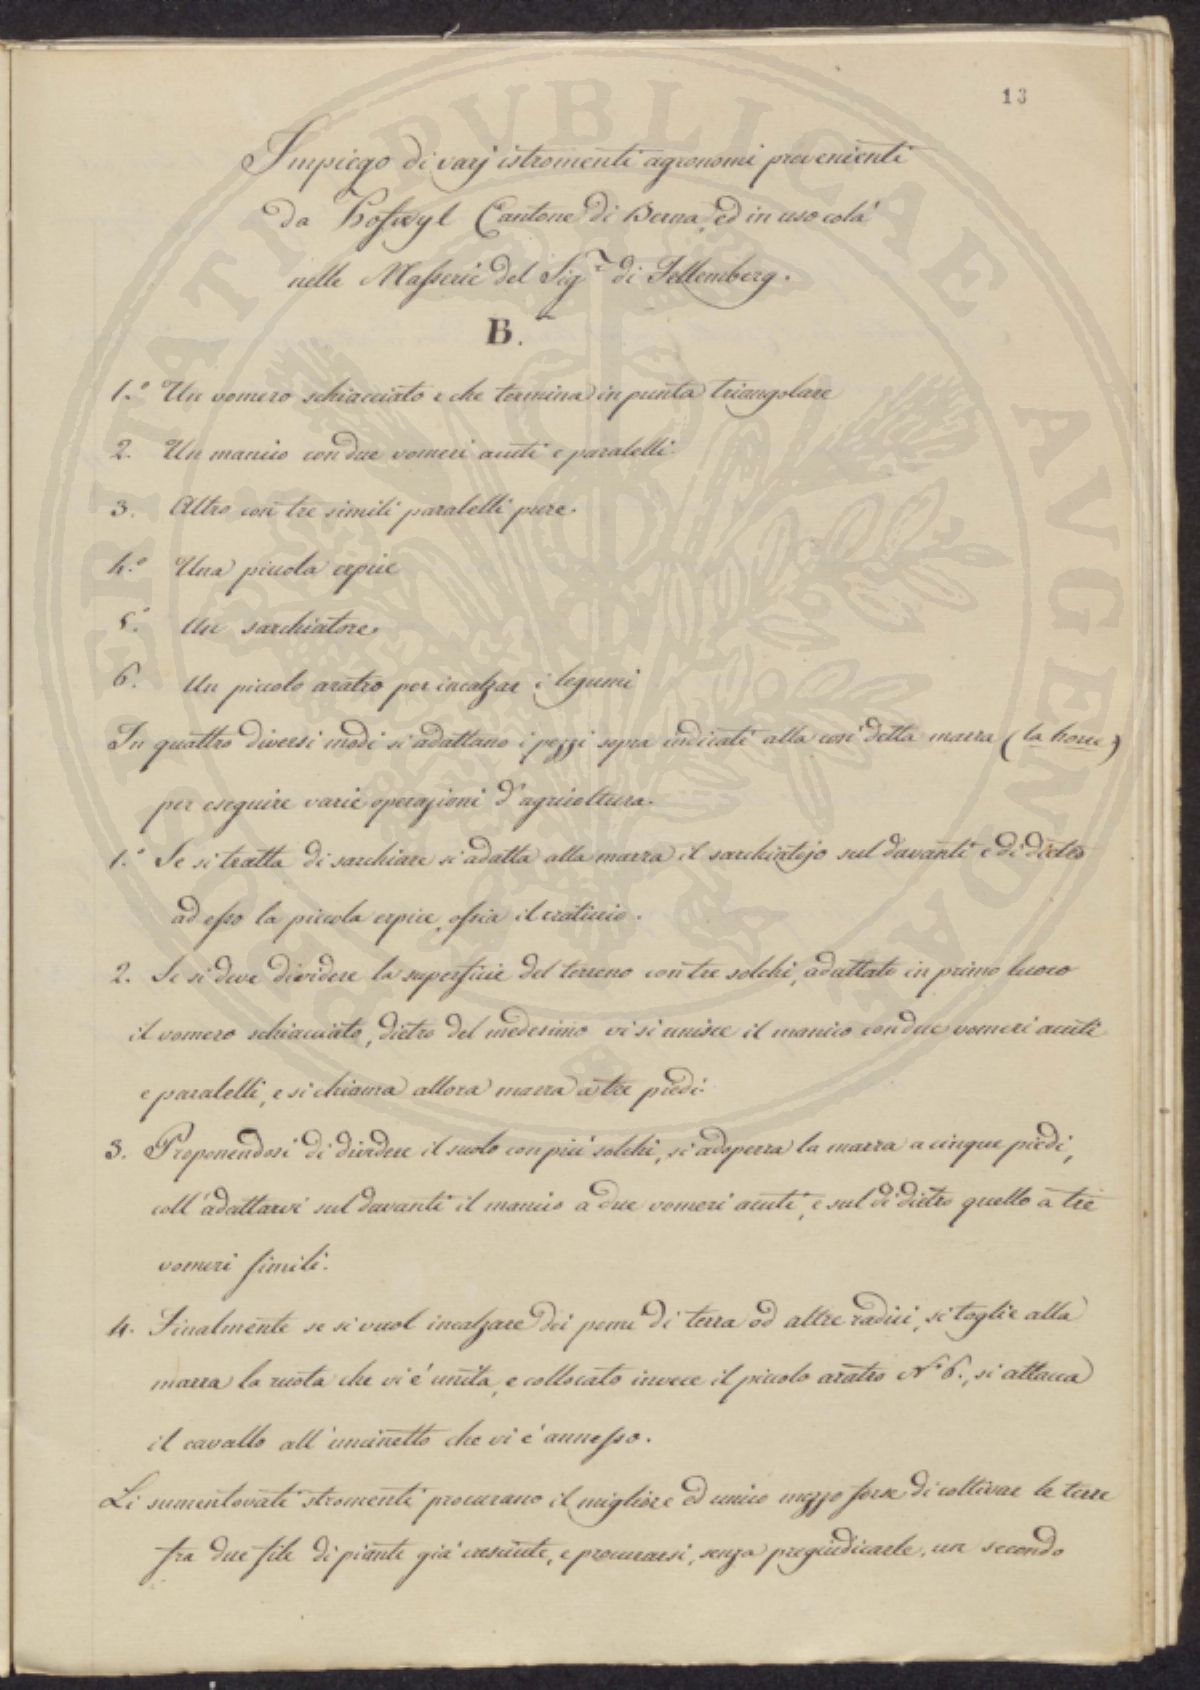 13
Impiego di varj istromenti agronomi provenienti
da Hofwyl Cantone di Berna, ed in uso colà
nelle Masserie del Sig.r di Fellemberg.
B.
1.° Un vomero schiacciato e che termina in punta triangolare
2. Un manico con due vomeri acuti e paralelli.
3. Altro con tre simili paralelli pure.
4.° Una piccola erpice
5.° Un sarchiatore.
6. Un piccolo aratro per incalzar i legumi
In quattro diversi modi si adattano i pezzi sopra indicati alla così detta marra (la houe)
per eseguire varie operazioni d'agricoltura.
1.° Se si tratta di sarchiare si adatta alla marra il sarchiatojo sul davanti e di dietro
ad esso la piccola erpice, ossia il craticcio.
2. Se si deve dividere la superficie del terreno con tre solchi, adattato in primo luoco
il vomero schiacciato, dietro del medesimo vi si unisce il manico con due vomeri acuti
e paralelli, e si chiama allora marra a tre piedi.
3. Proponendosi di dividere il suolo con più solchi, si adoperra la marra a cinque piedi,
coll'adattarvi sul davanti il manico a due vomeri acuti, e sul di dietro quello a tre
vomeri simili.
4. Finalmente se si vuol incalzare dei pomi di terra od altre radici, si toglie alla
marra la ruota che vi è unita, e collocato invece il piccolo aratro N.° 6., si attacca
il cavallo all'uncinetto che vi è annesso.
Li sumentovati stromenti procurano il migliore ed unico mezzo forse di coltivar le terre
fra due file di piante già cresciute, e procurarsi, senza pregiudicarle, un secondo
PUBLICAE
AVGENDAE